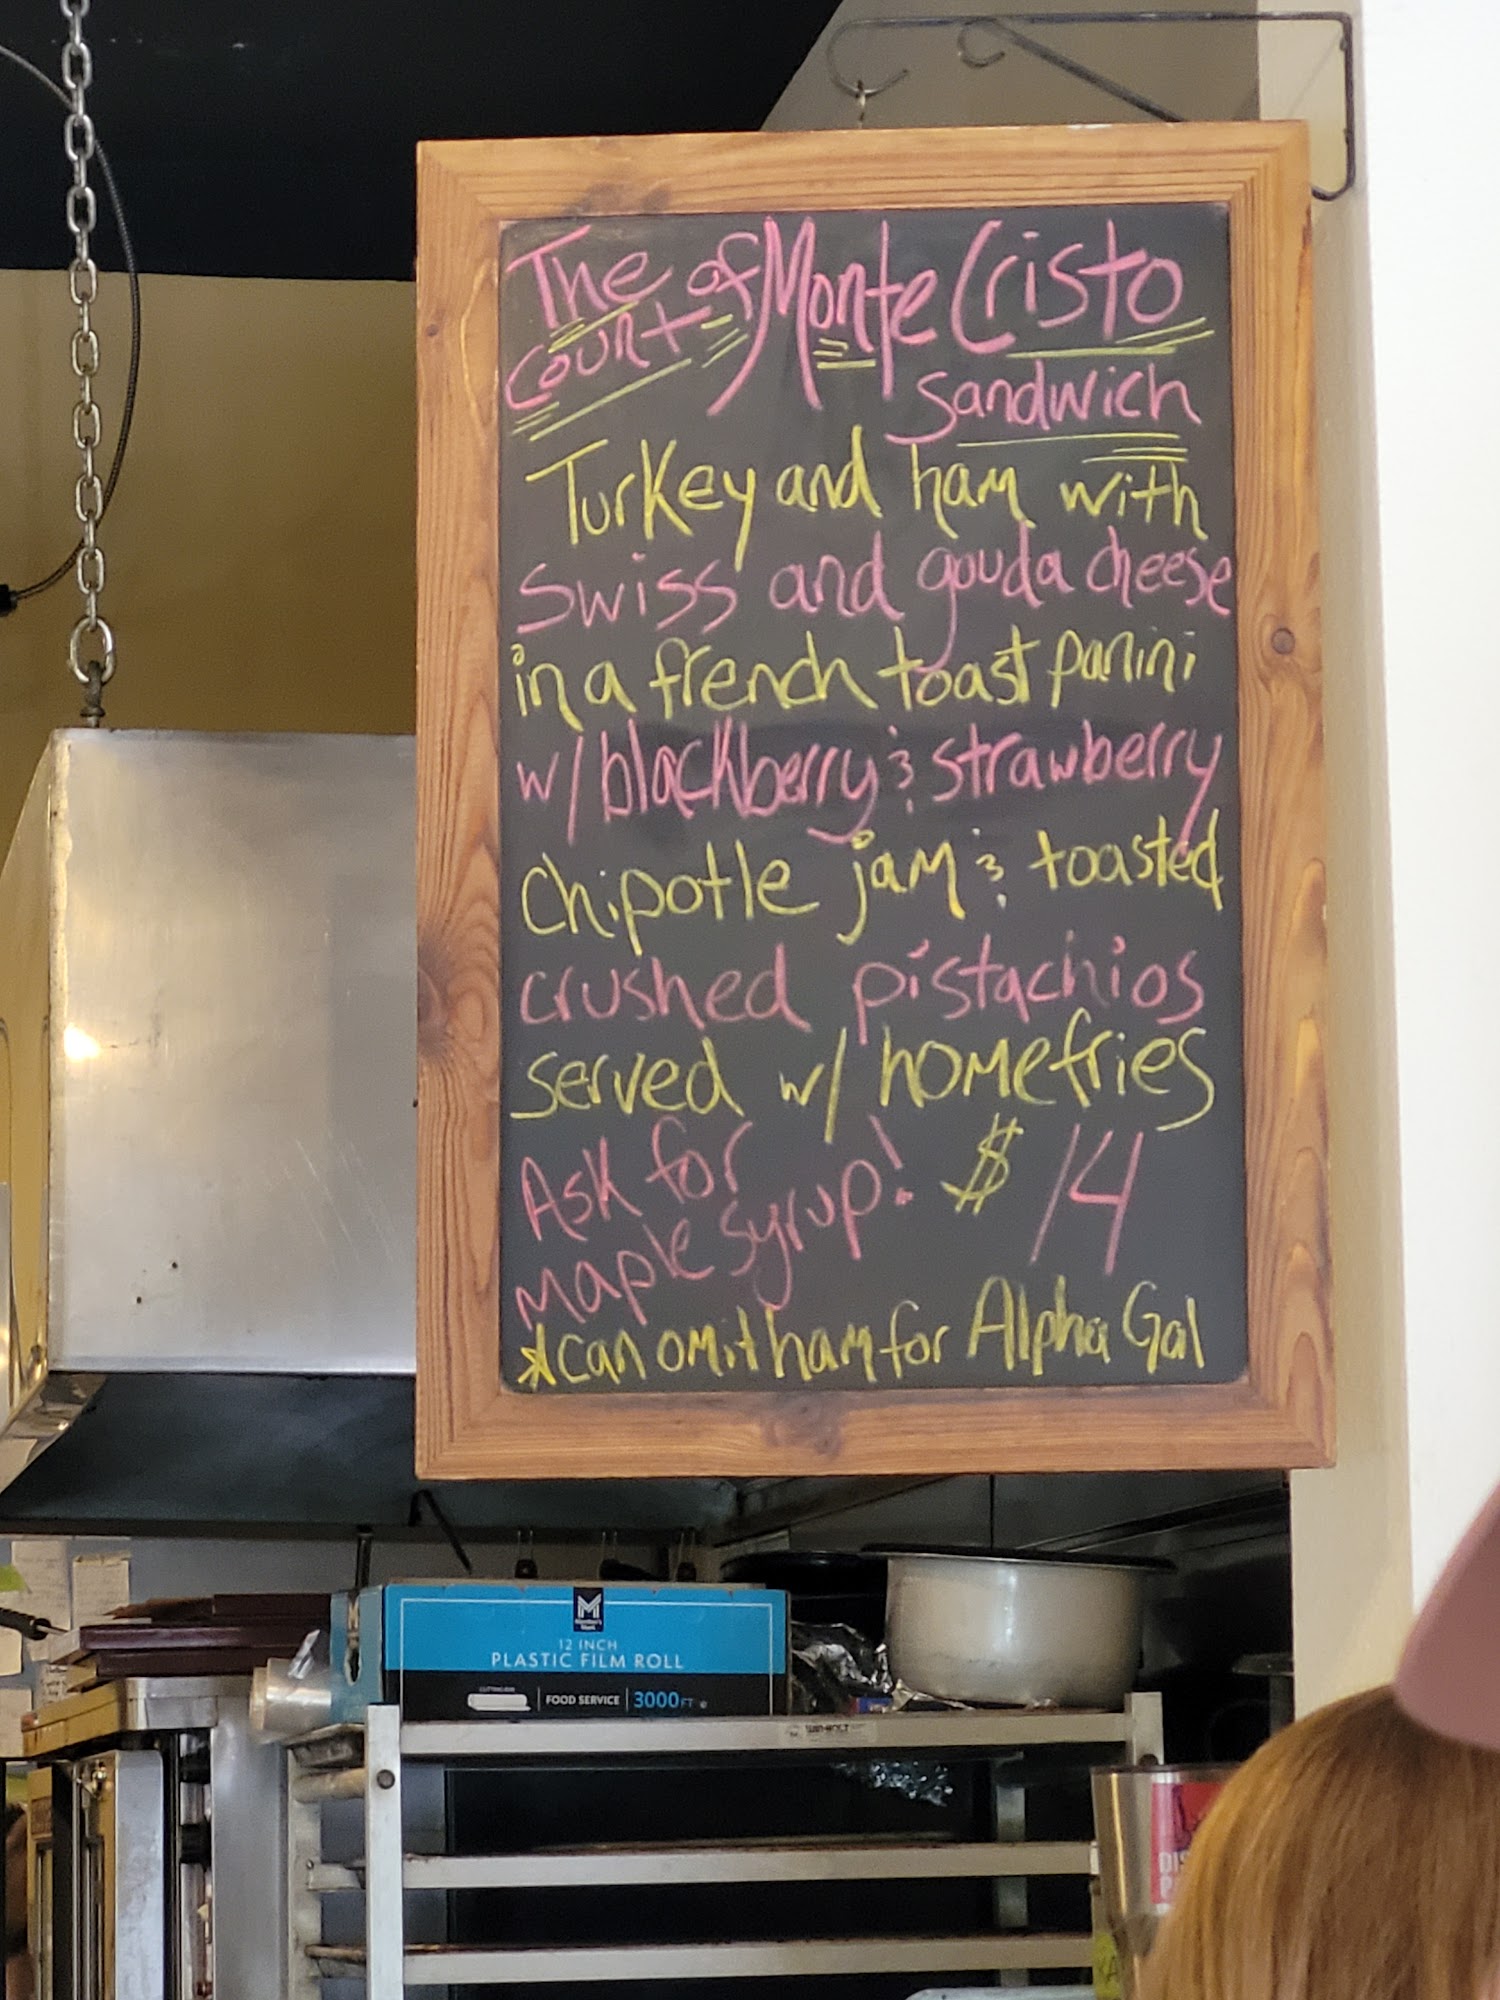 The
Count of Monte Cristo
sandwich
Turkey and ham with
Swiss and gouda cheese
in a french toast panini
w/ blackberry & strawberry
chipotle jam & toasted
crushed pistachios
served w/ homefries
Ask for
maple syrup! $14
*can omit ham for Alpha Gal
M
Member's
Mark
12 INCH
PLASTIC FILM ROLL
FOOD SERVICE 3000 FT
WIN-HOLT
DIS